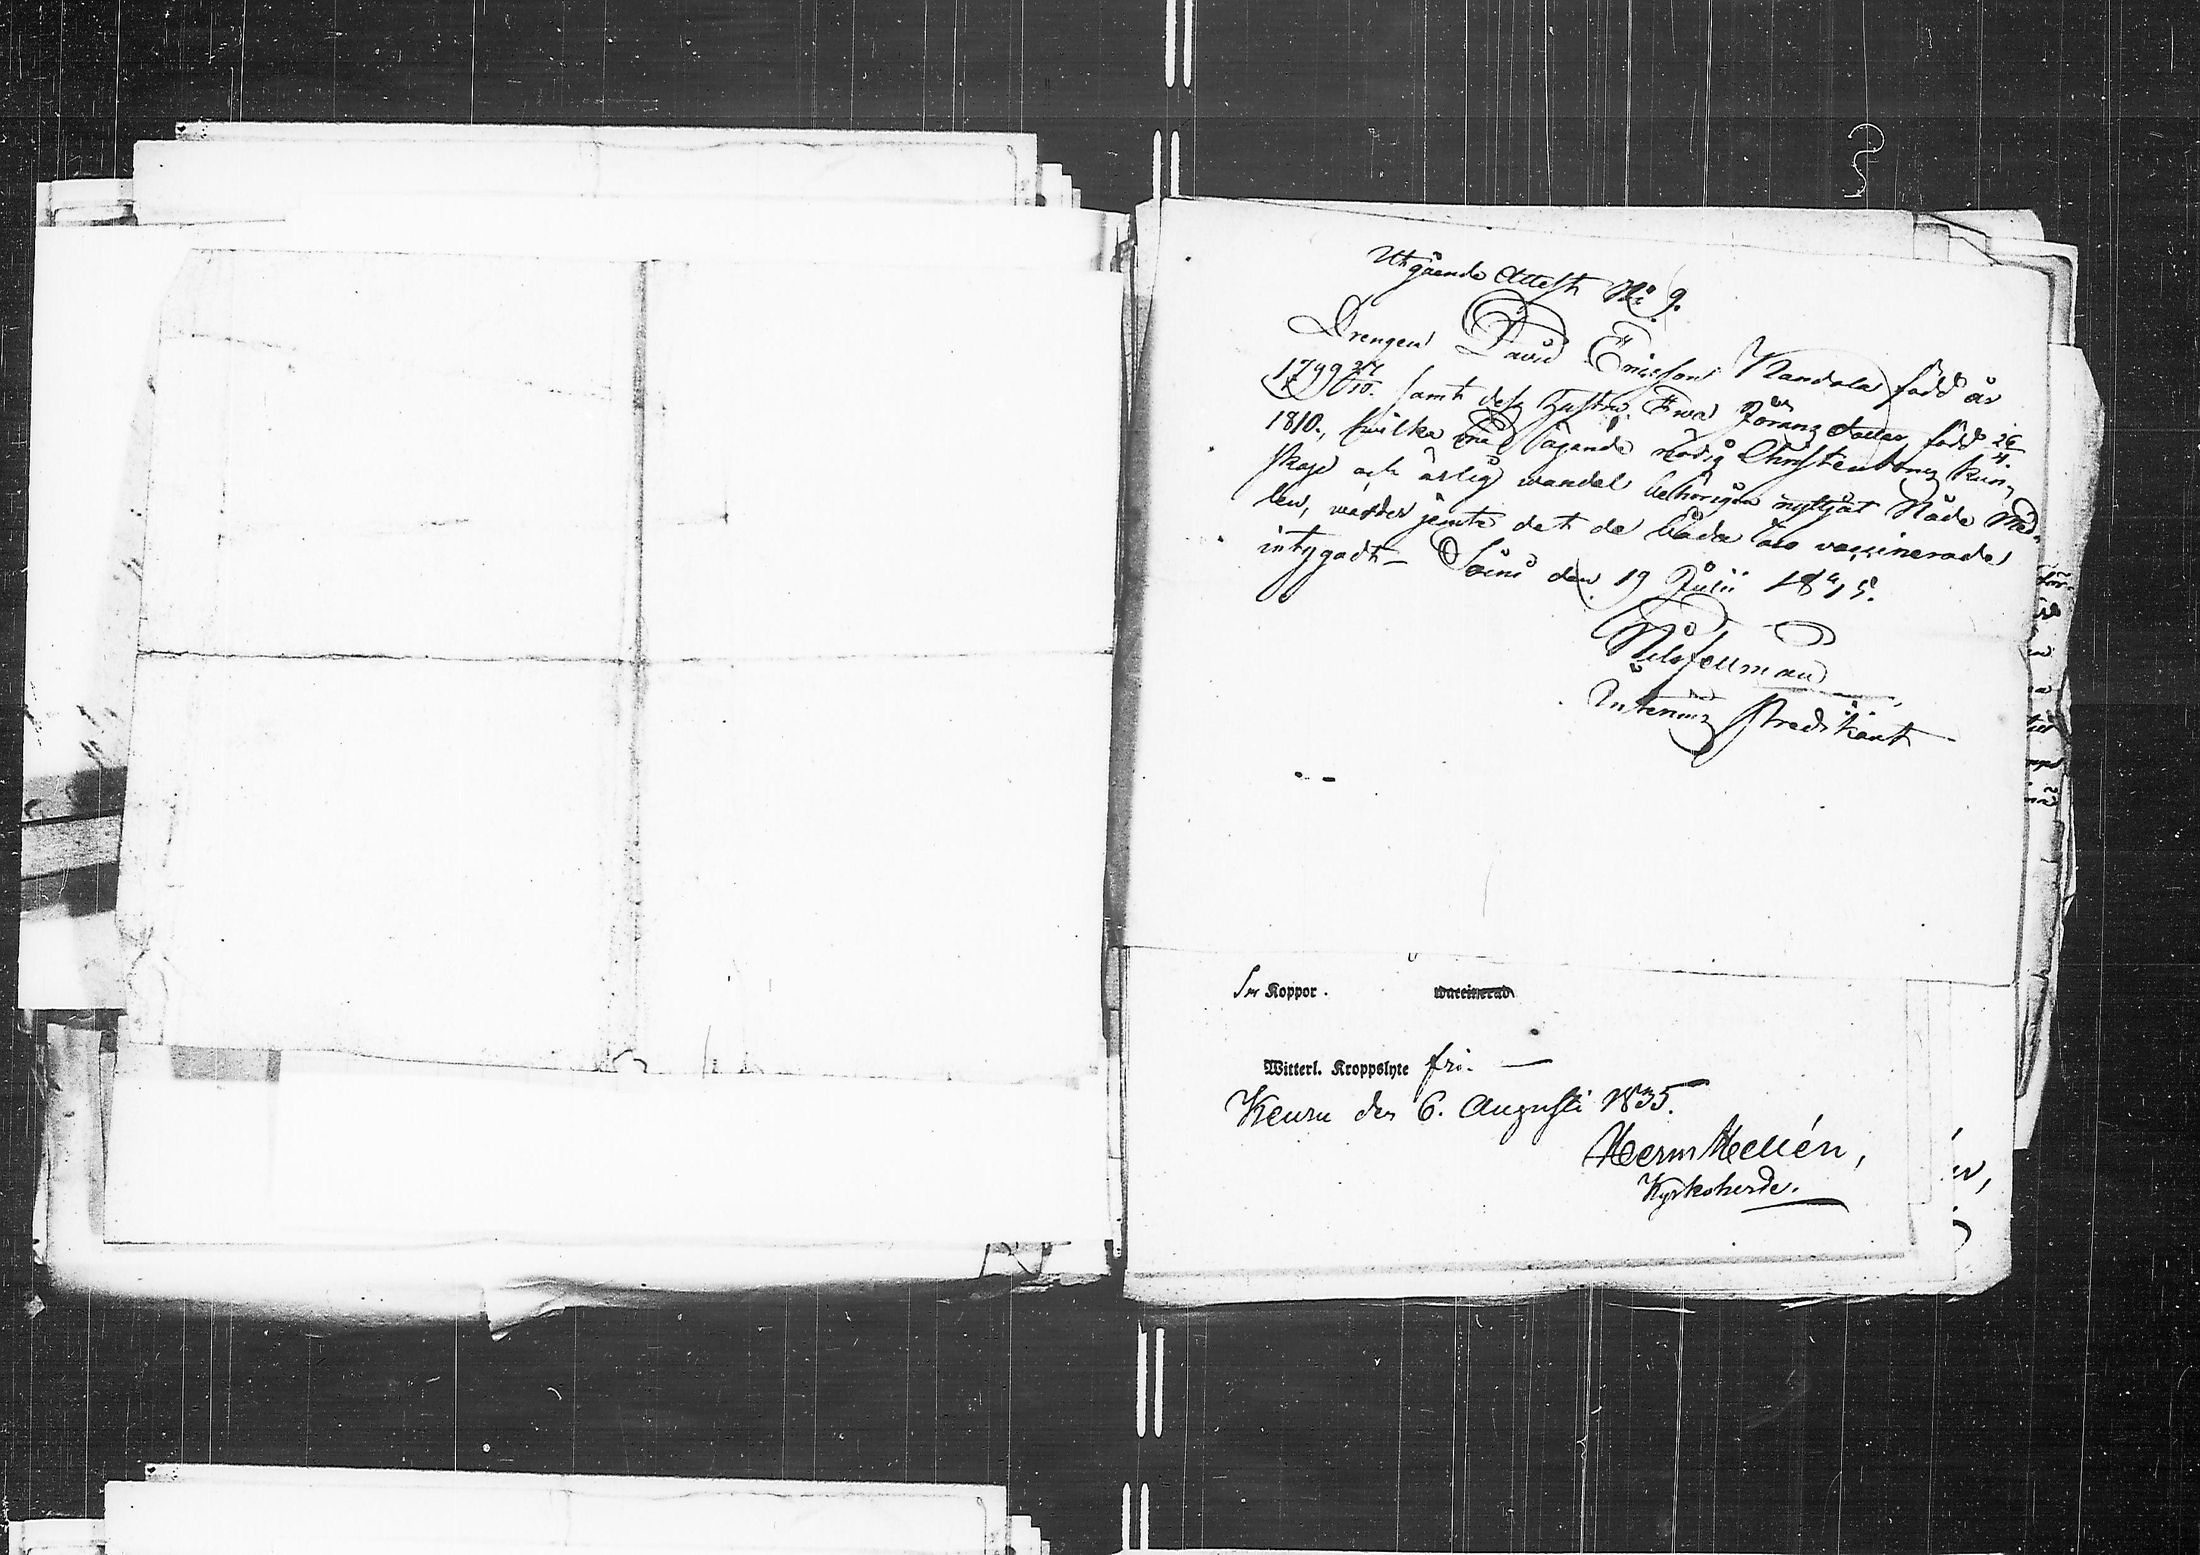 Utgående Attest No 9.
Drengen David Ericsson Kandala född år
1799 27/10. samt dess Hustru Ewa Jöransdotter, född 26/4.
1810., hvilka med ägande nödig Christendoms kun-
skap och ärlig wandel behörigen nyttjat Nåde Med-
len, warder jemte det de båda äro vaccinerade
intygadt – Soini den 19 Julii 1835.
Nils Fellman
Interims Predikant
Koppor.
waccinerad
Witterl. Kroppslyte fri. —
Keuru den 6. Augusti 1835.
Herm Hellén,
Kyrkoherde.